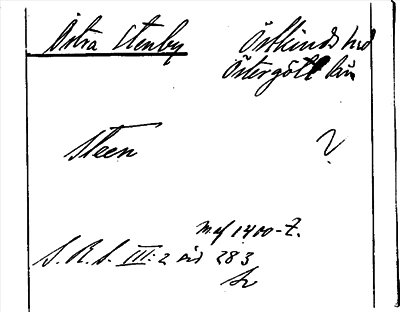 Östra Stenby Östkinds hd
Östergötl län
Steen ?
S.R.S. III:2 sid 283